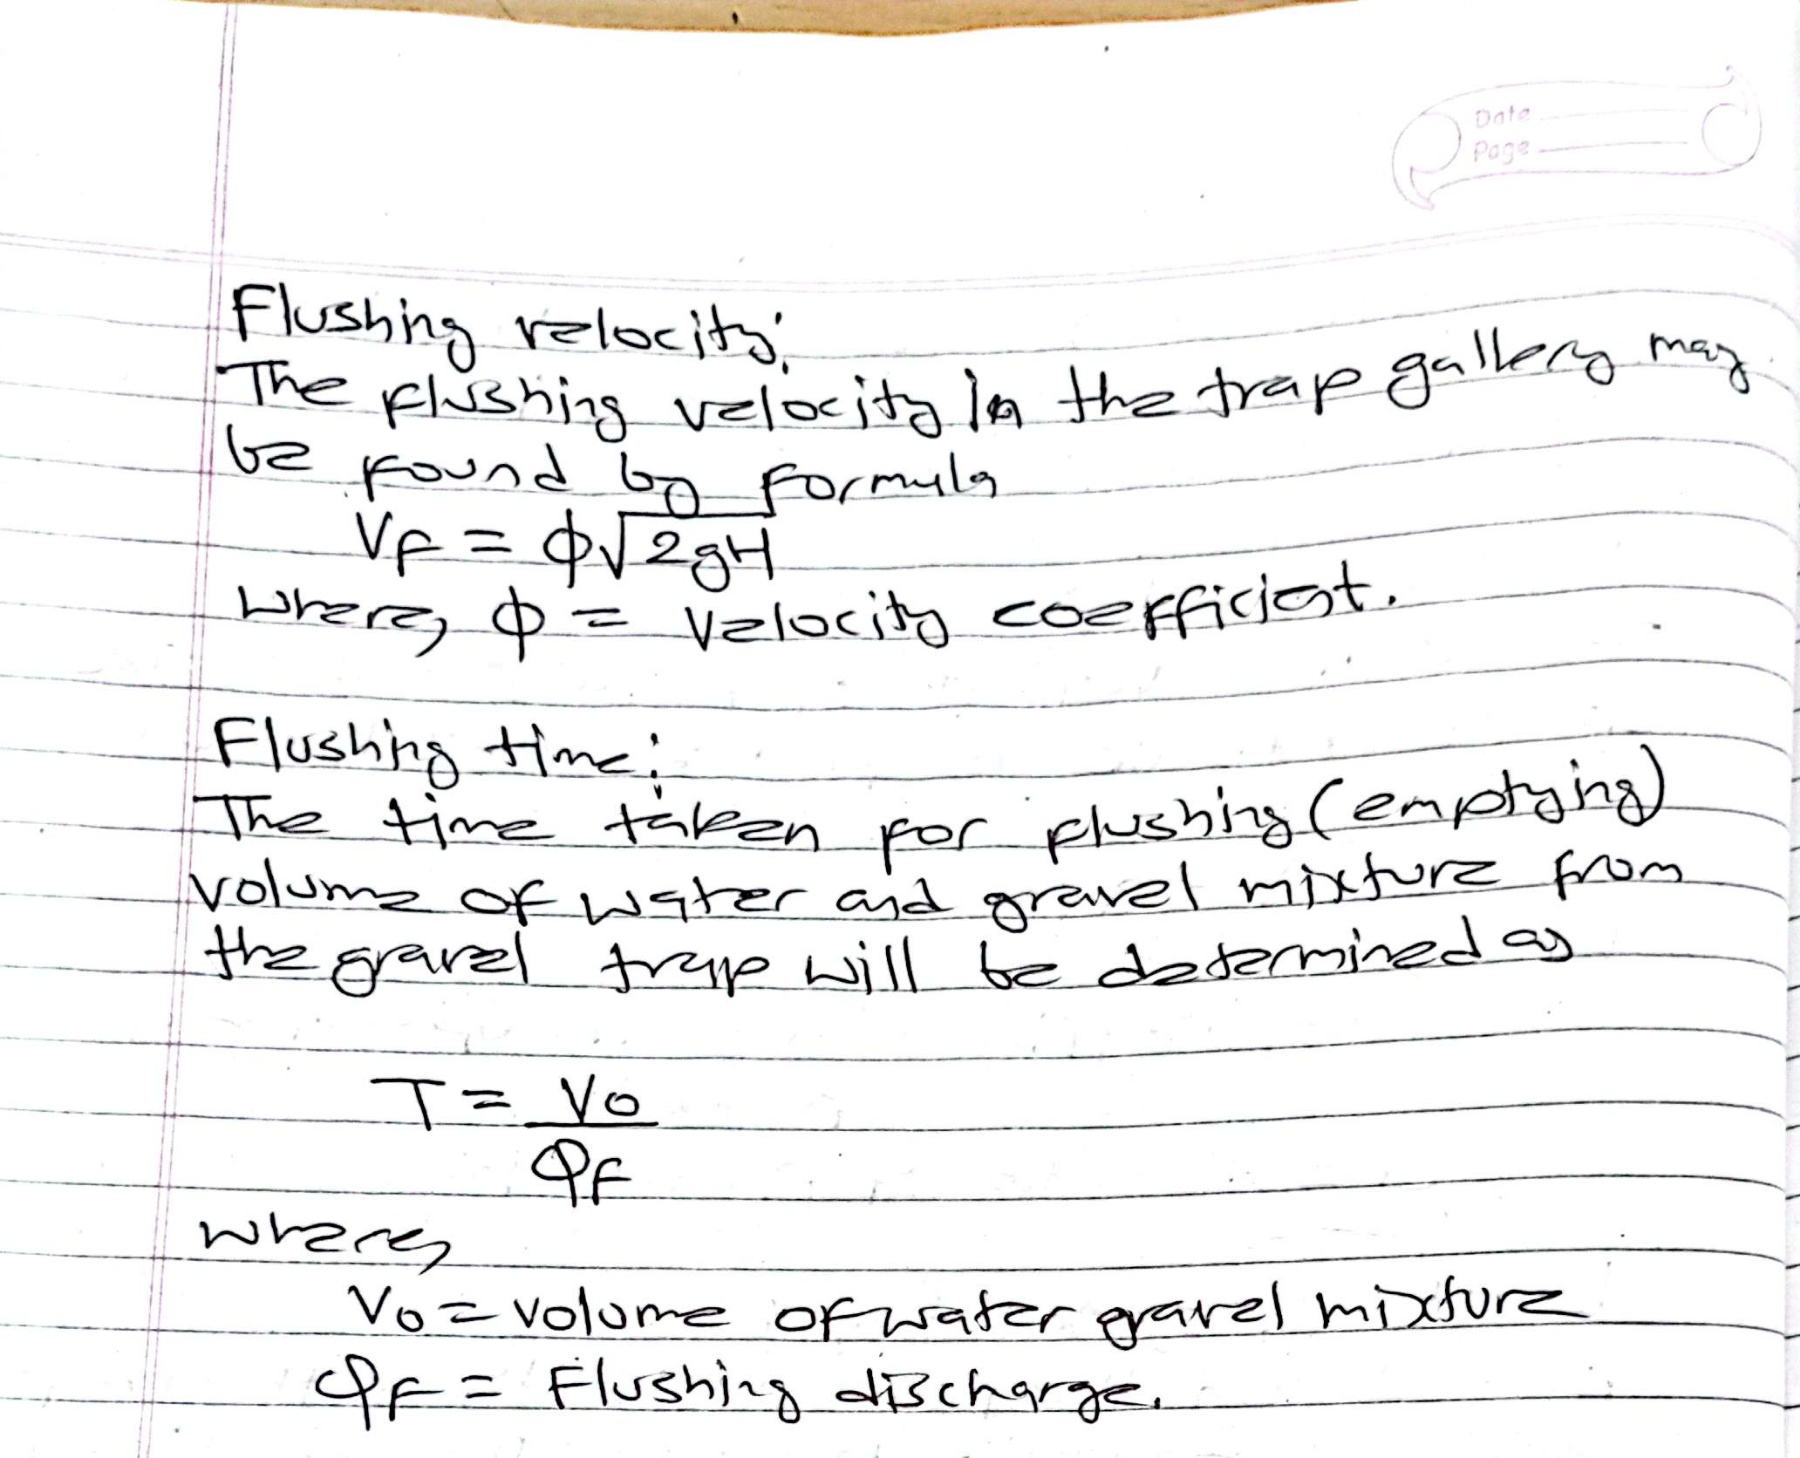 Date
Page
Flushing velocity:
The flushing velocity in the trap gallery may
be found by formula
VF = ϕ√2gH
where, ϕ = Velocity coefficient.
Flushing time:
The time taken for flushing (emptying)
volume of water and gravel mixture from
the gravel trap will be determined as
T = Vo
QF
where,
Vo = volume of water gravel mixture
QF = Flushing discharge.